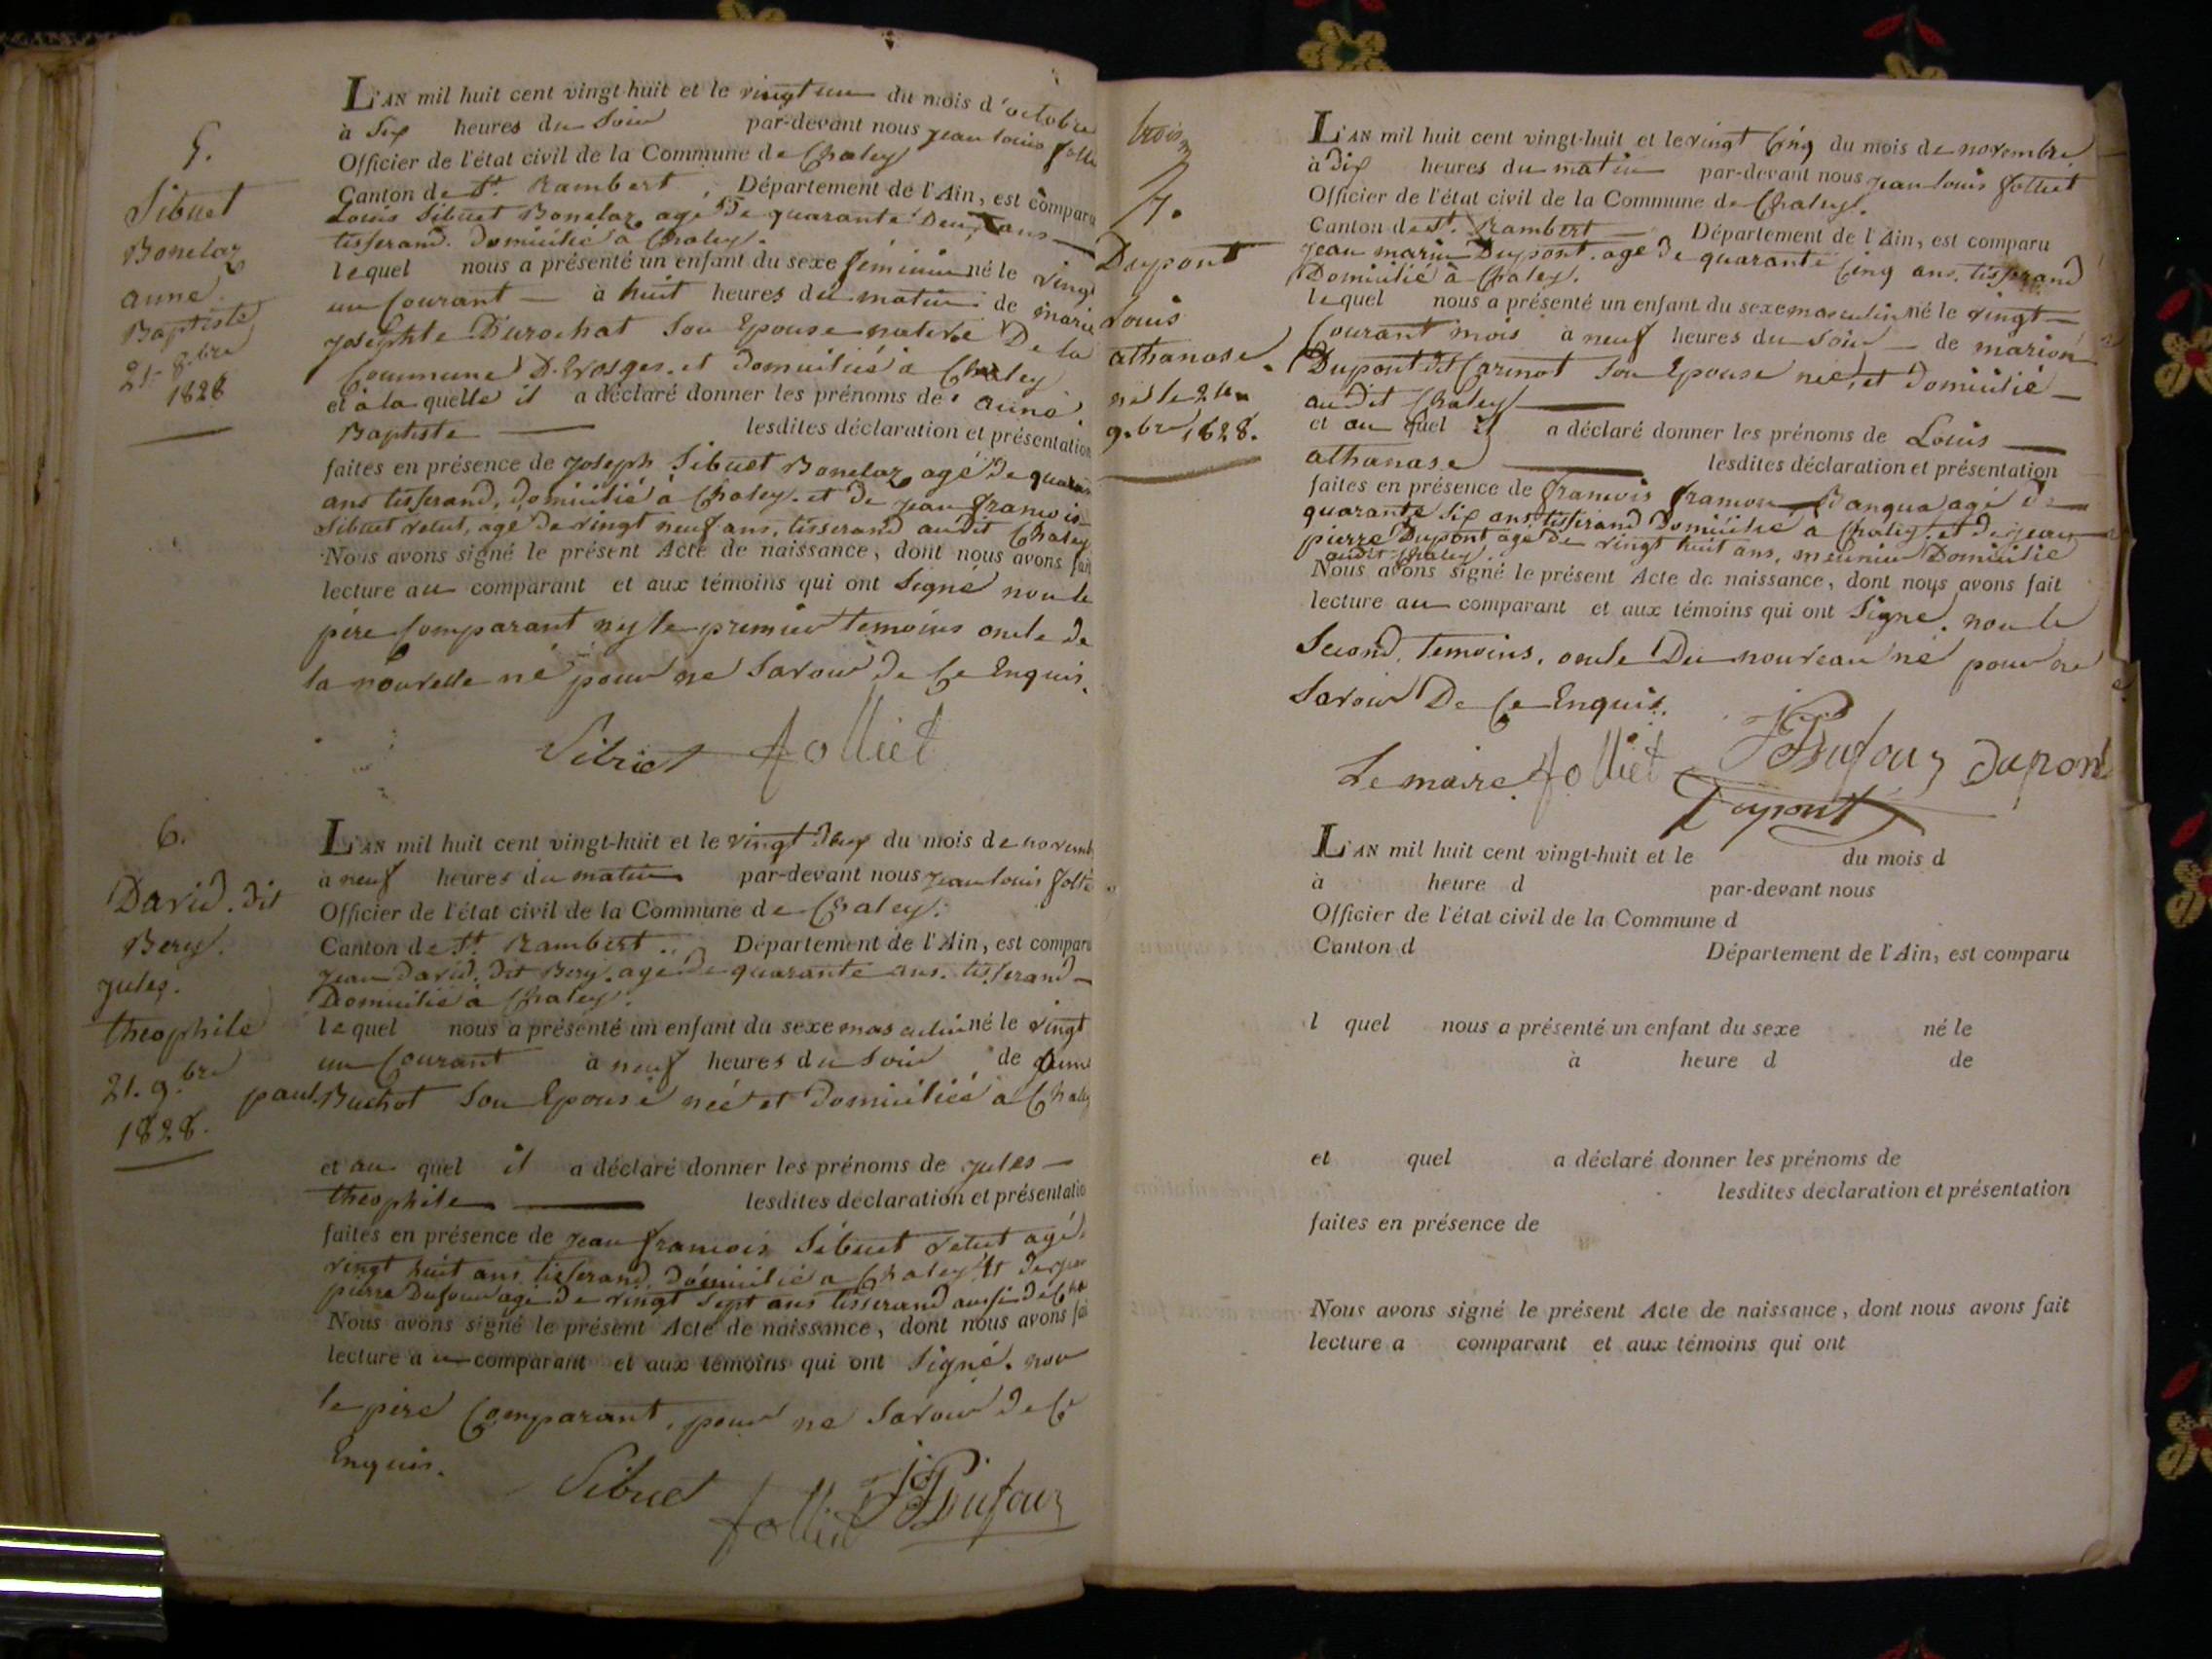 5.
Sibuet
Bonelaz
anne
Baptiste
21. 8.bre
1828
L'AN mil huit cent vingt-huit et le vingt un du mois d'octobre
à Six heures du Soir par-devant nous jean louis folliet
Officier de l'état civil de la Commune de Chaley
Canton de St. Rambert, Département de l'Ain, est comparu
Louis Sibuet Bonelaz agé De quarante Deux ans
tisserand. domicilié à Chaley.
lequel nous a présenté un enfant du sexe féminin né le vingt
un Courant — à huit heures du matin de marie
josephte Durochat Son Epouse native De la
Commune D'Evosges. et domiciliés à Chaley
et à la quelle il a déclaré donner les prénoms de anne
Baptiste — lesdites déclaration et présentation
faites en présence de joseph Sibuet Bonelaz agé De quarante
ans tisserand, domicilié à Chaley. et de jean francois
Sibuet vetut, agé De vingt neuf ans, tisserand audit Chaley
Nous avons signé le présent Acte de naissance, dont nous avons fait
lecture au comparant et aux témoins qui ont Signé non le
père Comparant ny le premier temoins oncle de
la nouvelle né pour ne Savoir De Ce Enquis.
Sibuet folliet
6.
David. dit
Bery.
jules.
theophile
21. 9.bre
1828.
L'AN mil huit cent vingt-huit et le vingt deux du mois de novemb
à neuf heures du matin par-devant nous jean louis follié
Officier de l'état civil de la Commune de Chaley.
Canton de St. Rambert .. Département de l'Ain, est comparu
jean David. Dit Bery. agé De quarante ans. tisserand —
Domicilié à Chaley.
lequel nous a présenté un enfant du sexe masculin né le vingt
un Courant à neuf heures du Soir de
paul. Buchot Son Epouse née et Domiciliée à Chaley
et au quel il a déclaré donner les prénoms de jules —
theophile — lesdites déclaration et présentatio
faites en présence de jean francois Sibuet vetut agé
vingt huit ans tisserand, domicilié a Chaley Et de jean
pierre Dufour agé De vingt Sept ans tisserand aussi
Nous avons signé le présent Acte de naissance, dont nous avons fai
lecture au comparant et aux témoins qui ont Signé. non
le père Comparant, pour ne Savoir De Ce
Enquis.
Sibuet folliet JPDufour
trois
7.
Dupont
Louis
athanase.
né le
9.bre 1828.
L'AN mil huit cent vingt-huit et le vingt Cinq du mois de novembre
à Dix heures du matin par-devant nous jean louis folliet
Officier de l'état civil de la Commune de Chaley.
Canton de St. Rambert — Département de l'Ain, est comparu
jean marie Dupont. agé De quarante Cinq ans. tisserand
Domicilié à Chaley.
lequel nous a présenté un enfant du sexe masculin né le vingt —
Courant mois à neuf heures du Soir — de marion
Dupont dit Carinot Son Epouse née, et Domicilié —
audit Chaley —
et au quel il a déclaré donner les prénoms de Louis —
athanase — lesdites déclaration et présentation
faites en présence de francois framon Banqua agé de
quarante Six ans tisserand Domicilié à Chaley. et de jean
pierre Dupont agé De vingt huit ans, meunier Domicilié
audit Chaley.
Nous avons signé le présent Acte de naissance, dont nous avons fait
lecture au comparant et aux témoins qui ont Signé. non le
Second, temoins, oncle Du nouveau né pour ne
Savoir De Ce Enquis.
Le maire. folliet JPDufour Dupont
Dupont
L'AN mil huit cent vingt-huit et le du mois d
à heure d par-devant nous
Officier de l'état civil de la Commune d
Canton d Département de l'Ain, est comparu
l quel nous a présenté un enfant du sexe né le
à heure d de
et quel a déclaré donner les prénoms de
lesdites déclaration et présentation
faites en présence de
Nous avons signé le présent Acte de naissance, dont nous avons fait
lecture a comparant et aux témoins qui ont